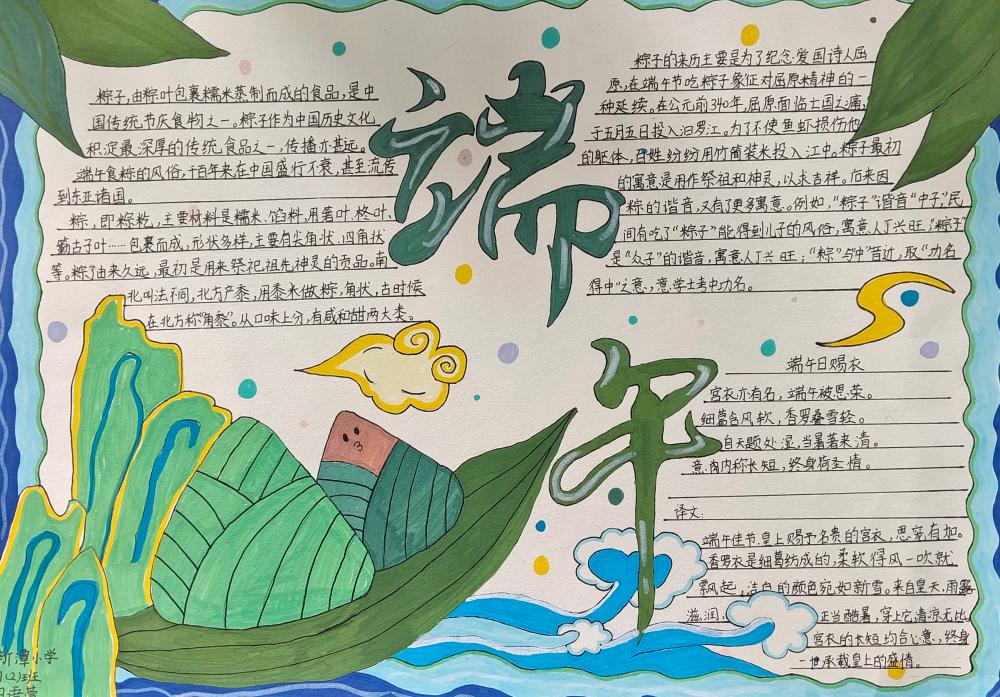 粽子,由粽叶包裹糯米蒸制而成的食品,是中
国传统节庆食物之一。粽子作为中国历史文化
积淀最深厚的传统食品之一,传播亦甚远。
端午食粽的风俗,千百年来在中国盛行不衰,甚至流传
到东亚诸国。
粽,即粽籺,主要材料是糯米、馅料,用箬叶、柊叶、
簕古子叶……包裹而成,形状多样,主要有尖角状、四角状
等。粽子由来久远,最初是用来祭祀祖先神灵的贡品。南
北叫法不同,北方产黍,用黍米做粽,角状,古时候
在北方称“角黍”。从口味上分,有咸和甜两大类。
端
午
粽子的来历主要是为了纪念爱国诗人屈
原,在端午节吃粽子象征对屈原精神的一
种延续。在公元前340年,屈原面临亡国之痛,
于五月五日投入汨罗江。为了不使鱼虾损伤他
的躯体,百姓纷纷用竹筒装米投入江中。粽子最初
的寓意是用作祭祖和神灵,以求吉祥。后来因
粽的谐音,又有了更多寓意。例如,“粽子”谐音“中子”,民
间有吃了“粽子”能得到儿子的风俗,寓意人丁兴旺;“粽子”
是“众子”的谐音,寓意人丁兴旺;“粽”与“中”音近,取“功名
得中”之意,意学士考中功名。
端午日赐衣
宫衣亦有名,端午被恩荣。
细葛含风软,香罗叠雪轻。
自天题处湿,当暑著来清。
意内称长短,终身荷圣情。
译文:
端午佳节皇上赐予名贵的宫衣,恩宠有加。
香罗衣是细葛纺成的,柔软得风一吹就
飘起,洁白的颜色宛如新雪。来自皇天,雨露
滋润,正当酷暑,穿上它清凉无比。
宫衣的长短均合心意,终身
一世承载皇上的盛情。
新潭小学
(2)班